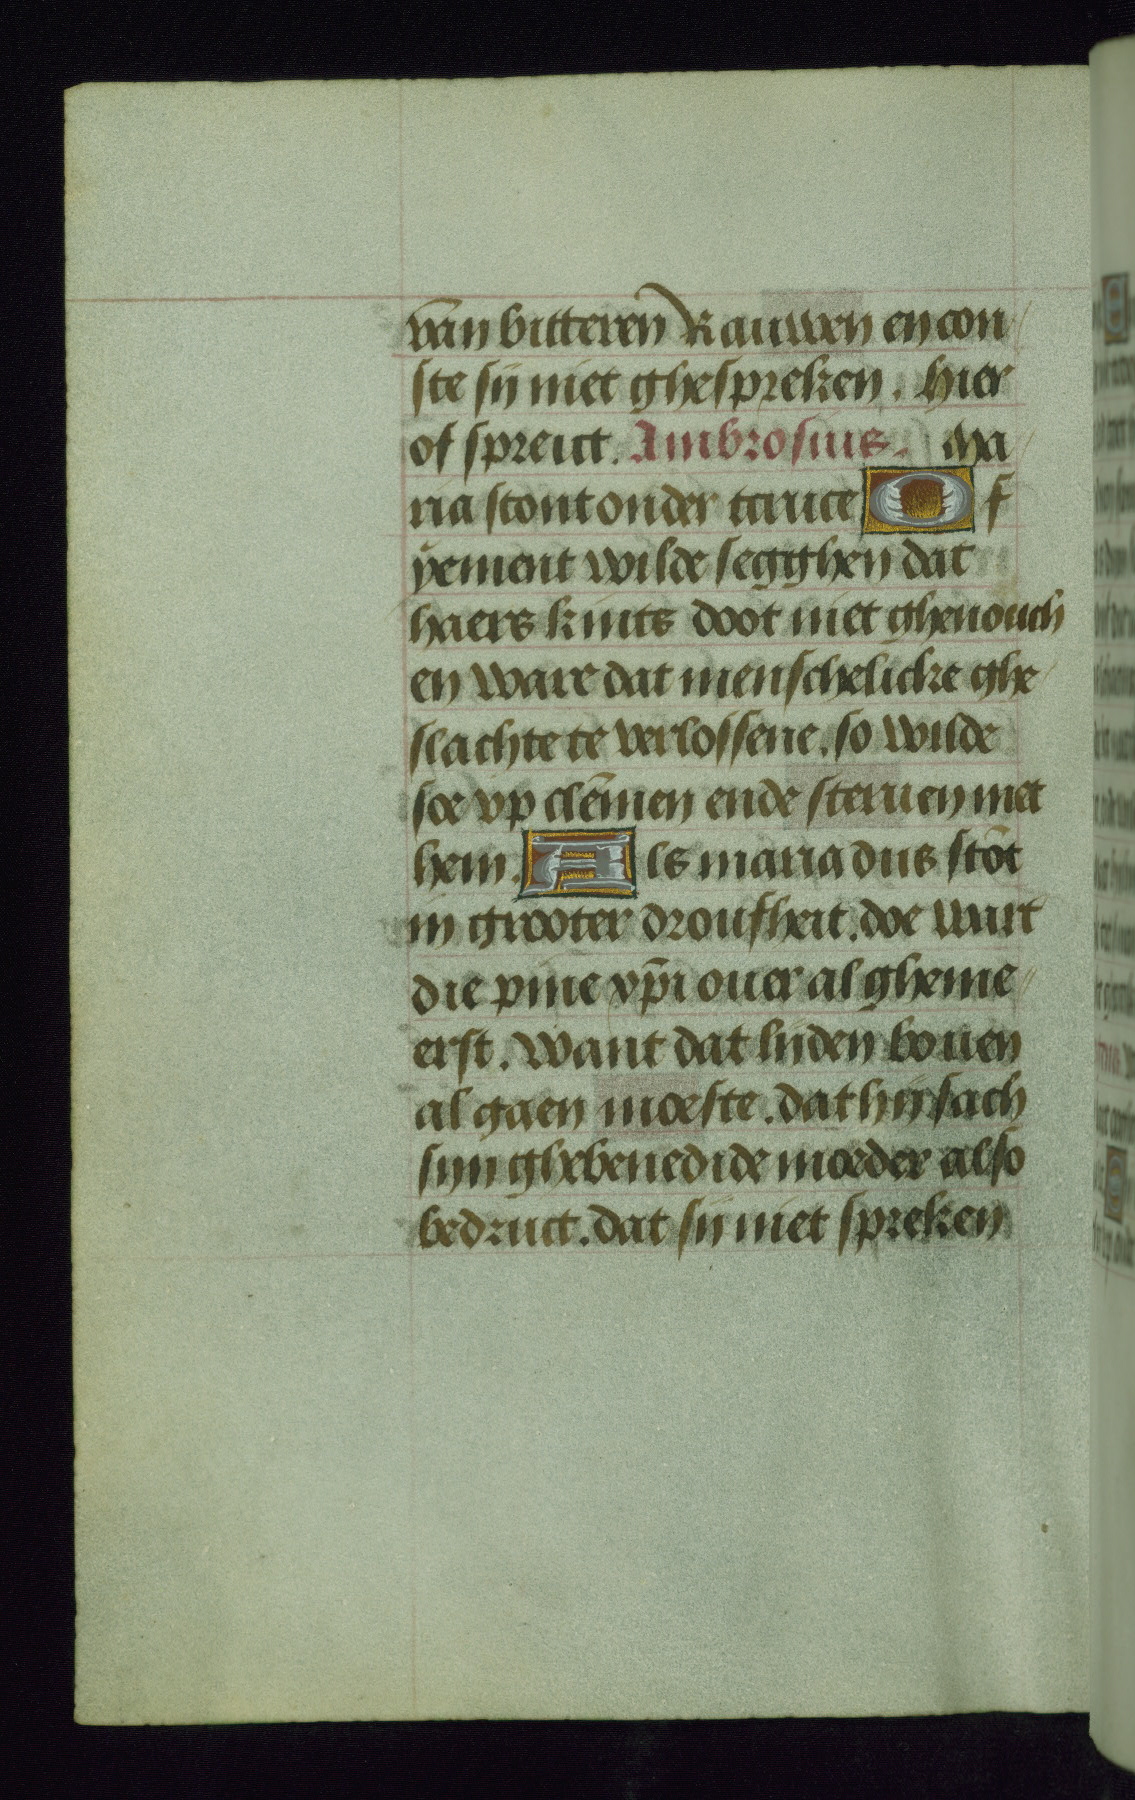 van bitteren Rauwen en con
ste sij niet ghespreken. Hier
of spreict. Ambrosius. Ma
ria stont onder tcruce Of
yement wilde segghen dat
haers kints doot niet ghenouch
en ware dat menschelicke ghe
slachte te verlossene. so wilde
soe vp clēmen ende steruen met
hem. Als maria dus stōt
in grooter droufheit. doe wart
die pine xp̄i ouer al gheme
erst. Want dat lijden bouen
al gaen moeste. dat hij sach
sijn ghebenedide moeder also
bedruct. dat sij niet spreken